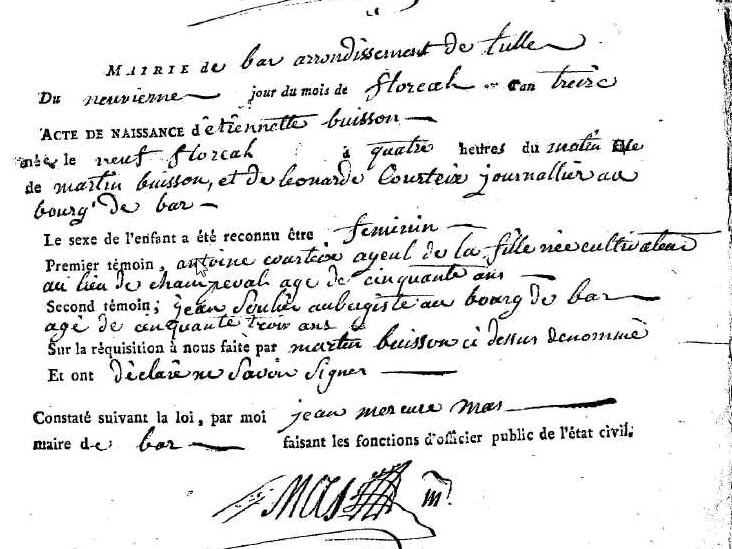 MAIRIE de bar arrondissement de tulle
Du neuvieme jour du mois de floreal an treize
ACTE DE NAISSANCE d'étiennette buisson
née le neuf floreal à quatre heures du matin
de martin buisson, et de leonarde Courteix journallier au
bourg de bar
Le sexe de l'enfant a été reconnu être feminin
Premier témoin, antoine courteix ayeul de la fille née cultivateur
au lieu de champeval age de cinquante ans
Second témoin; jean Soulier aubergiste au bourg de bar
agé de cinquante trois ans
Sur la réquisition à nous faite par martin buisson ci dessus denommé
Et ont déclaré ne Savoir Signer
Constaté suivant la loi, par moi jean mercure mas
maire de bar faisant les fonctions d'officier public de l'état civil.
MAS m.